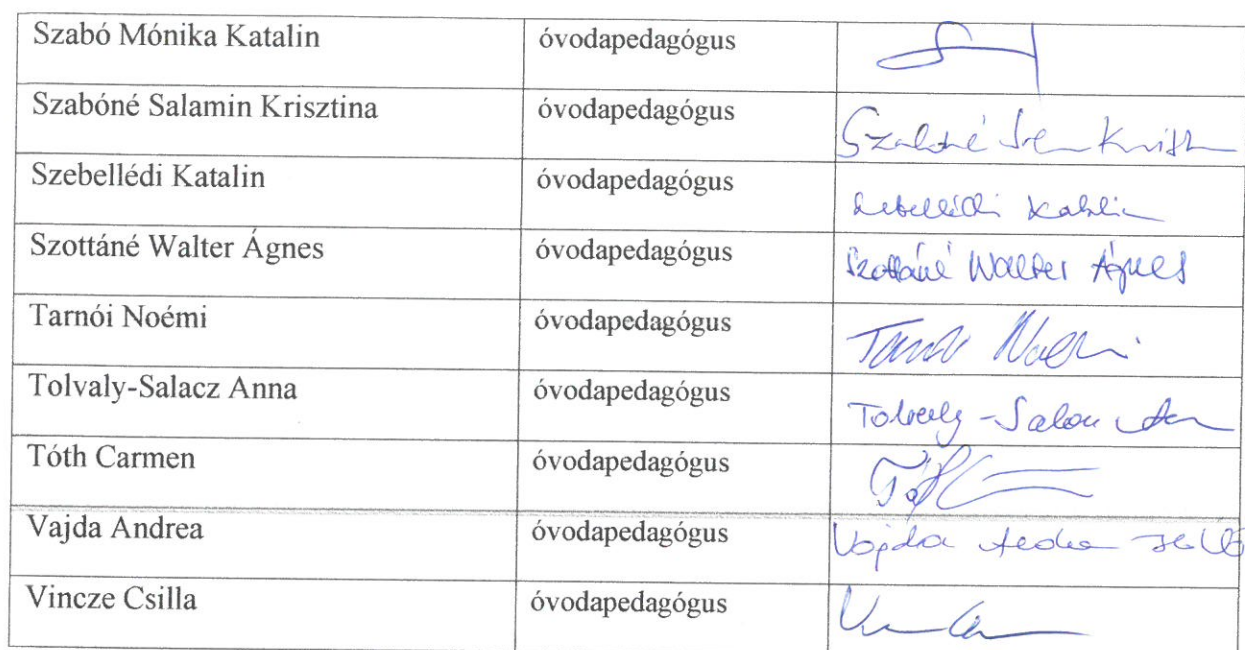 Szabó Mónika Katalin óvodapedagógus
Szabóné Salamin Krisztina óvodapedagógus Szabóné
Szebellédi Katalin óvodapedagógus Szebellédi Katalin
Szottáné Walter Ágnes óvodapedagógus Szottáné Walter Ágnes
Tarnói Noémi óvodapedagógus Tarnói Noémi
Tolvaly-Salacz Anna óvodapedagógus Tolvaly-Salacz Anna
Tóth Carmen óvodapedagógus Tóth
Vajda Andrea óvodapedagógus Vajda Andrea
Vincze Csilla óvodapedagógus